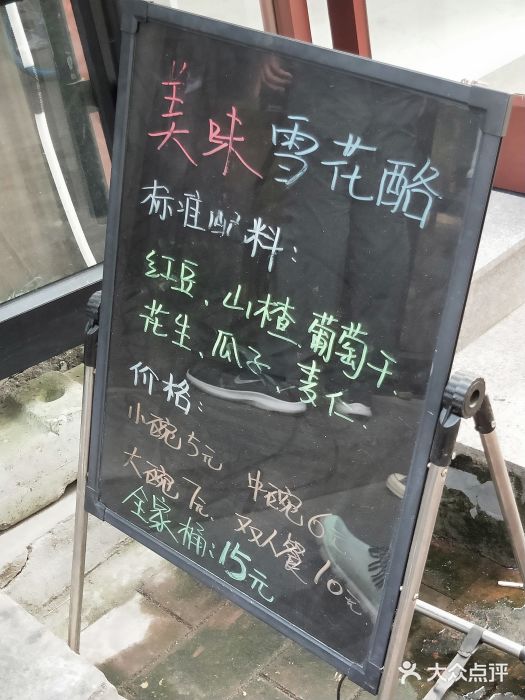 美味雪花酪
标准配料：
红豆、山楂、葡萄干、
花生、瓜子、麦仁、
价格：
小碗5元 中碗6元
大碗7元、双人餐10元
全家桶：15元
大众点评